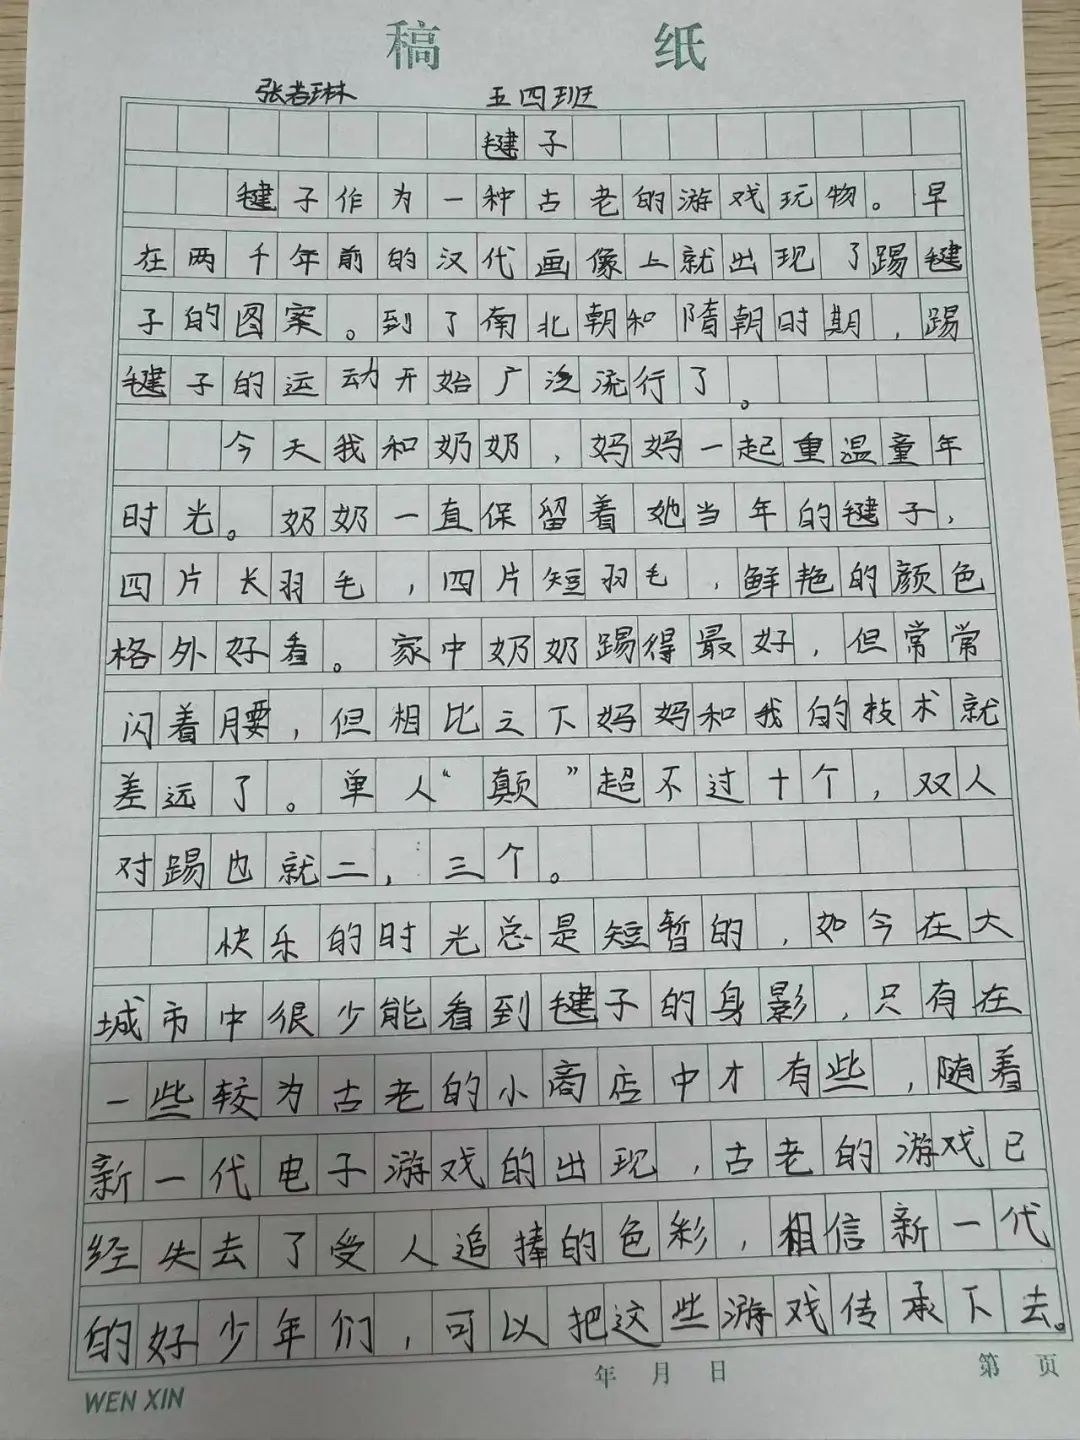 稿 纸
张若琳 五四班
毽子
毽子作为一种古老的游戏玩物。早
在两千年前的汉代画像上就出现了踢毽
子的图案。到了南北朝和隋朝时期,踢
毽子的运动开始广泛流行了。
今天我和奶奶,妈妈一起重温童年
时光。奶奶一直保留着她当年的毽子,
四片长羽毛,四片短羽毛,鲜艳的颜色
格外好看。家中奶奶踢得最好,但常常
闪着腰,但相比之下妈妈和我的技术就
差远了。单人“颠”超不过十个,双人
对踢也就二,三个。
快乐的时光总是短暂的,如今在大
城市中很少能看到毽子的身影,只有在
一些较为古老的小商店中才有些,随着
新一代电子游戏的出现,古老的游戏已
经失去了受人追捧的色彩,相信新一代
的好少年们,可以把这些游戏传承下去。
年 月 日 第 页
WEN XIN